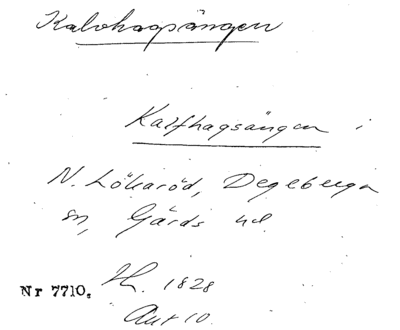 Kalvhagsängen
Kalfhagsängen i
N. Lökaröd, Degeberga
sn, Gärds hd.
Nr 7710. Hl. 1828
Akt 10